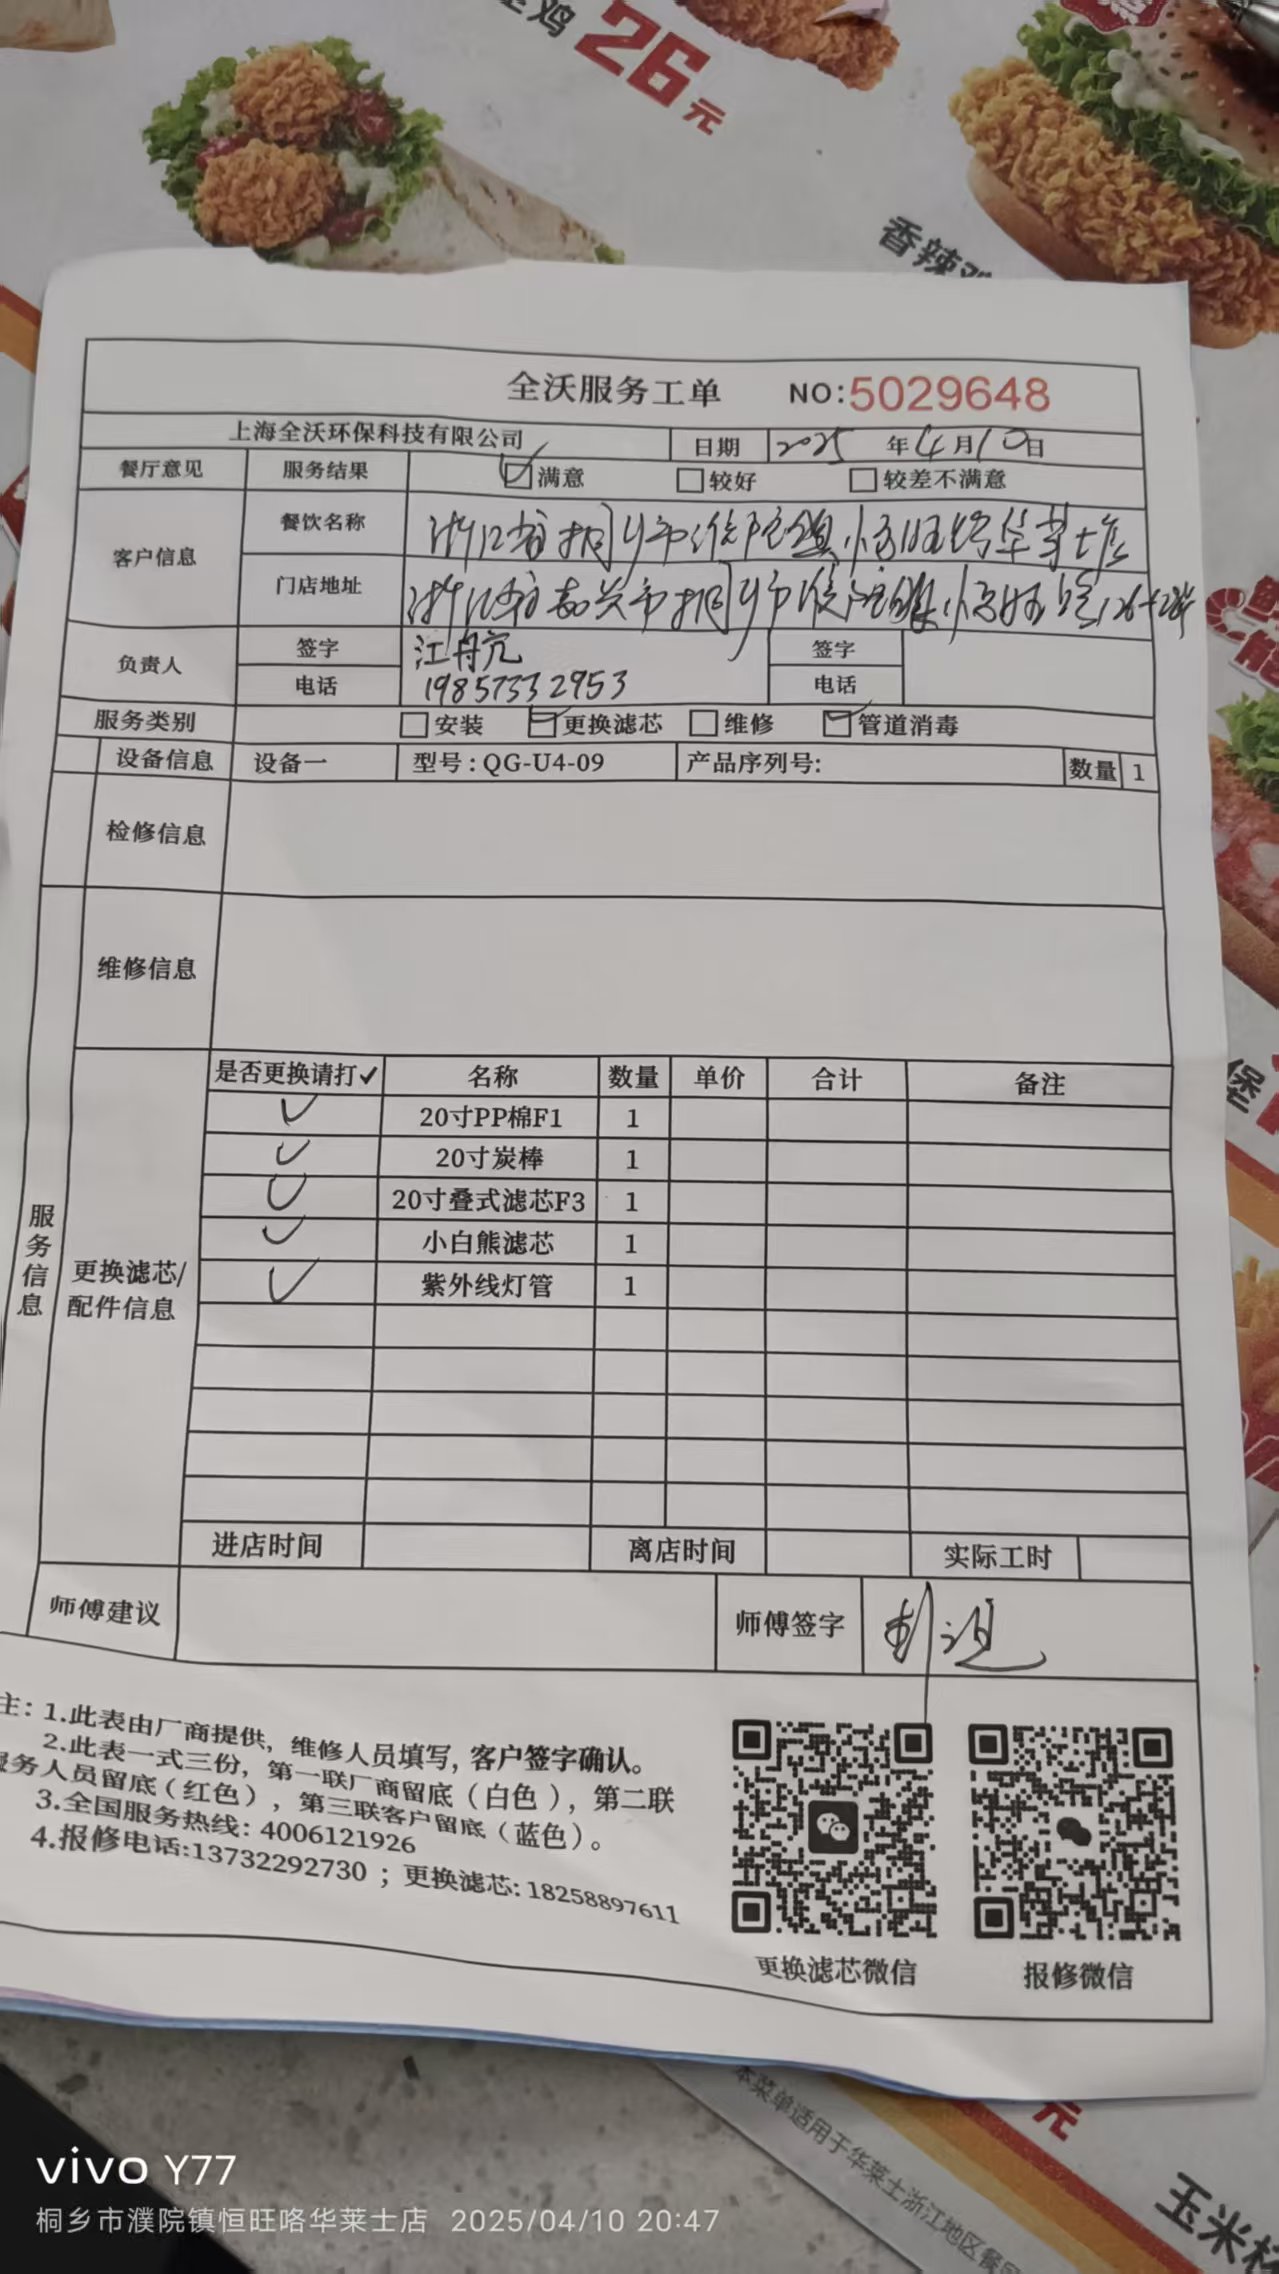 26元
香辣鸡
全沃服务工单 NO:5029648
上海全沃环保科技有限公司 日期 2025 年 4 月 10 日
餐厅意见 服务结果 满意 较好 较差不满意
客户信息 餐饮名称 浙江省桐乡市濮院镇恒旺路华莱士店
门店地址 浙江省嘉兴市桐乡市濮院镇恒旺路
负责人 签字 江舟亮 签字
电话 19857332953 电话
服务类别 安装 更换滤芯 维修 管道消毒
设备信息 设备一 型号:QG-U4-09 产品序列号: 数量 1
检修信息
维修信息
服务信息
更换滤芯/配件信息
是否更换请打✓ 名称 数量 单价 合计 备注
✓ 20寸PP棉F1 1
✓ 20寸炭棒 1
✓ 20寸叠式滤芯F3 1
✓ 小白熊滤芯 1
✓ 紫外线灯管 1
进店时间 离店时间 实际工时
师傅建议 师傅签字
主：1.此表由厂商提供，维修人员填写，客户签字确认。
2.此表一式三份，第一联厂商留底（白色），第二联
服务人员留底（红色），第三联客户留底（蓝色）。
3.全国服务热线: 4006121926
4.报修电话:13732292730；更换滤芯: 18258897611
更换滤芯微信 报修微信
堡
元
本菜单适用于华莱士浙江地区餐
玉米杯
vivo Y77
桐乡市濮院镇恒旺咯华莱士店 2025/04/10 20:47